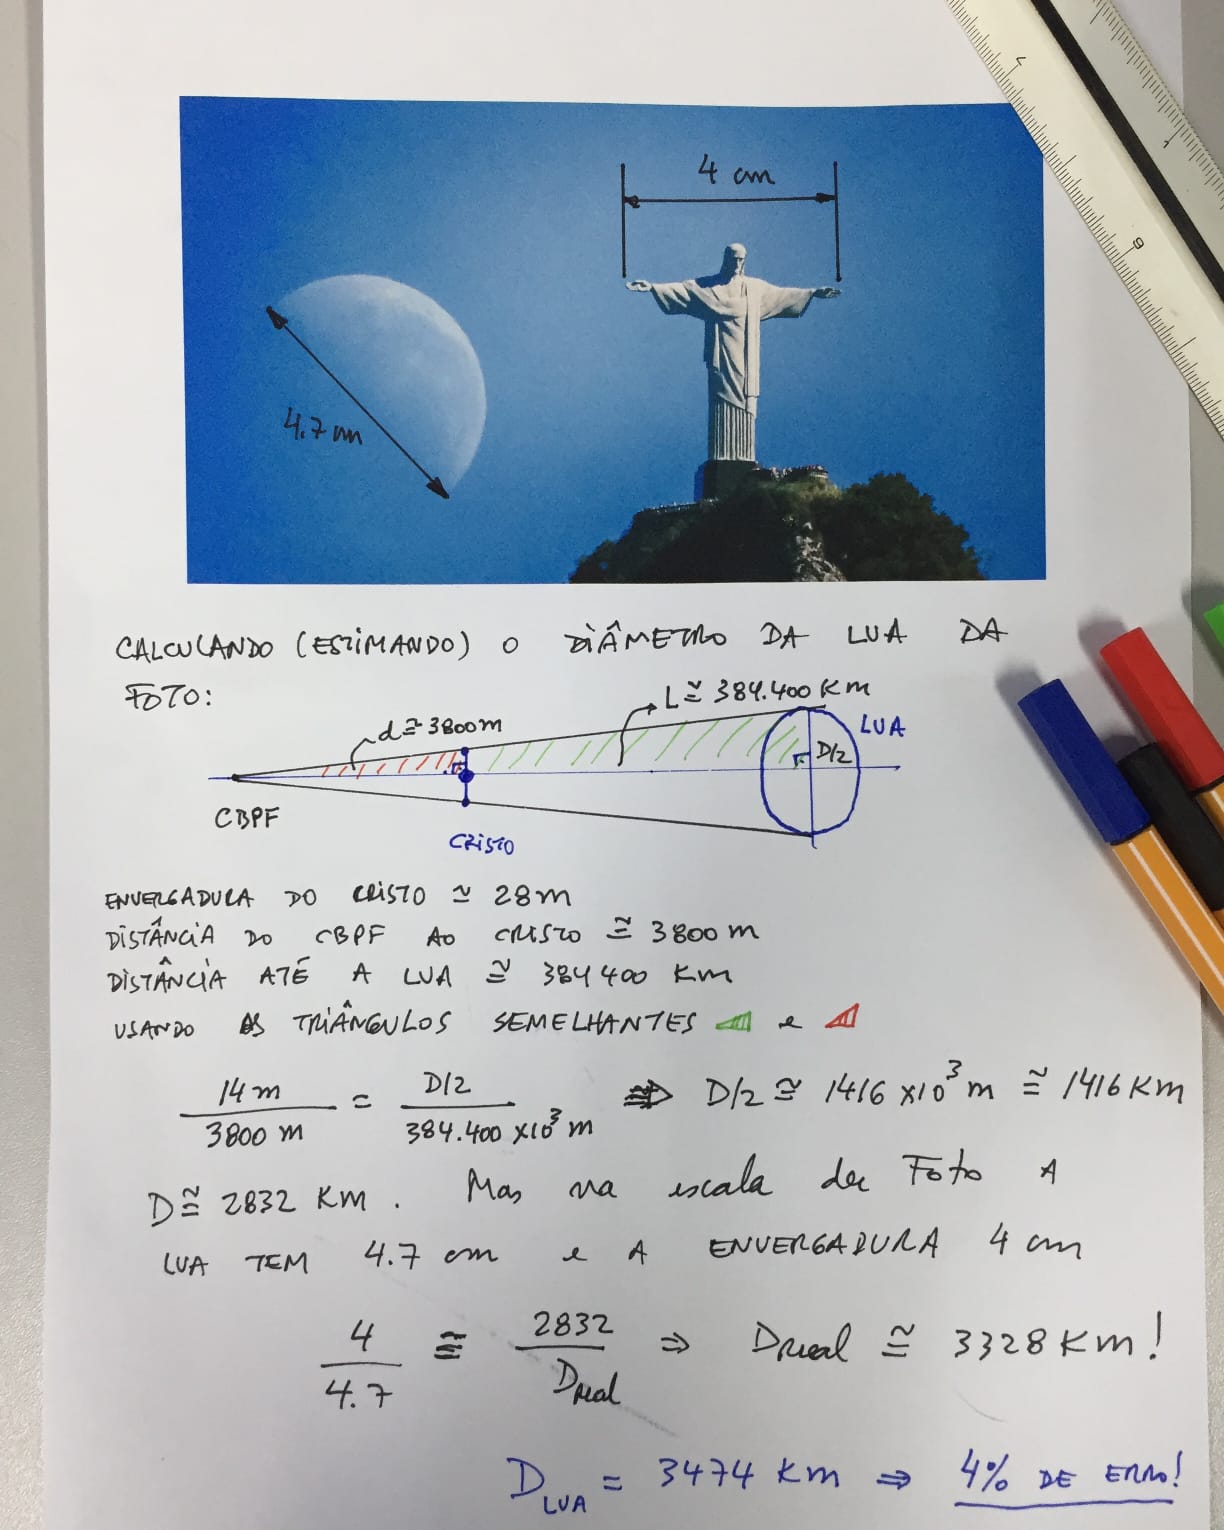 4 cm
4.7 cm
CALCULANDO (ESTIMANDO) O DIÂMETRO DA LUA DA
FOTO:
L ≅ 384.400 Km
d ≅ 3800 m
LUA
D/2
CBPF
CRISTO
ENVERGADURA DO CRISTO ≃ 28 m
DISTÂNCIA DO CBPF AO CRISTO ≅ 3800 m
DISTÂNCIA ATÉ A LUA ≅ 384400 Km
USANDO OS TRIÂNGULOS SEMELHANTES e
14 m / 3800 m = D/2 / 384.400 x10³ m ⇒ D/2 ≅ 1416 x10³ m ≅ 1416 Km
D ≅ 2832 Km. Mas na escala da Foto A
LUA TEM 4.7 cm e A ENVERGADURA 4 cm
4 / 4.7 ≅ 2832 / Dreal ⇒ Dreal ≅ 3328 Km!
D LUA = 3474 Km ⇒ 4% DE ERRO!